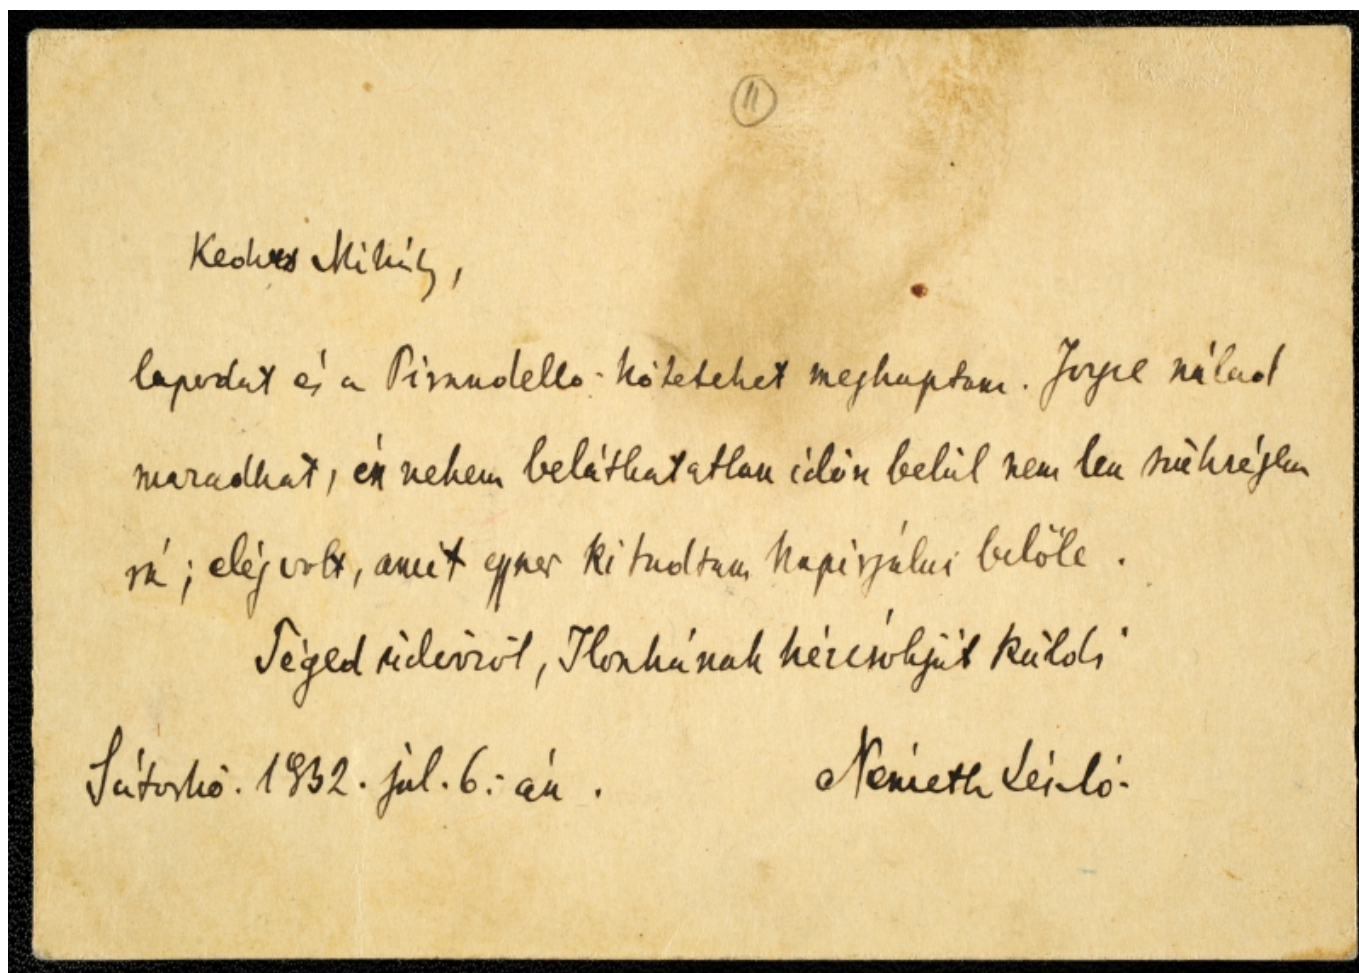 11
Kedves Mihály,
lapodat és a Pirandello-köteteket megkaptam. Joyce nálad
maradhat, én nekem beláthatatlan időn belül nem lesz szükségem
rá; elég volt, amit egyszer ki tudtam kapirgálni belőle.
Téged üdvözöl, Ilonkának kézcsókját küldi
Sátorkő. 1932. júl. 6.-án.
Németh László.